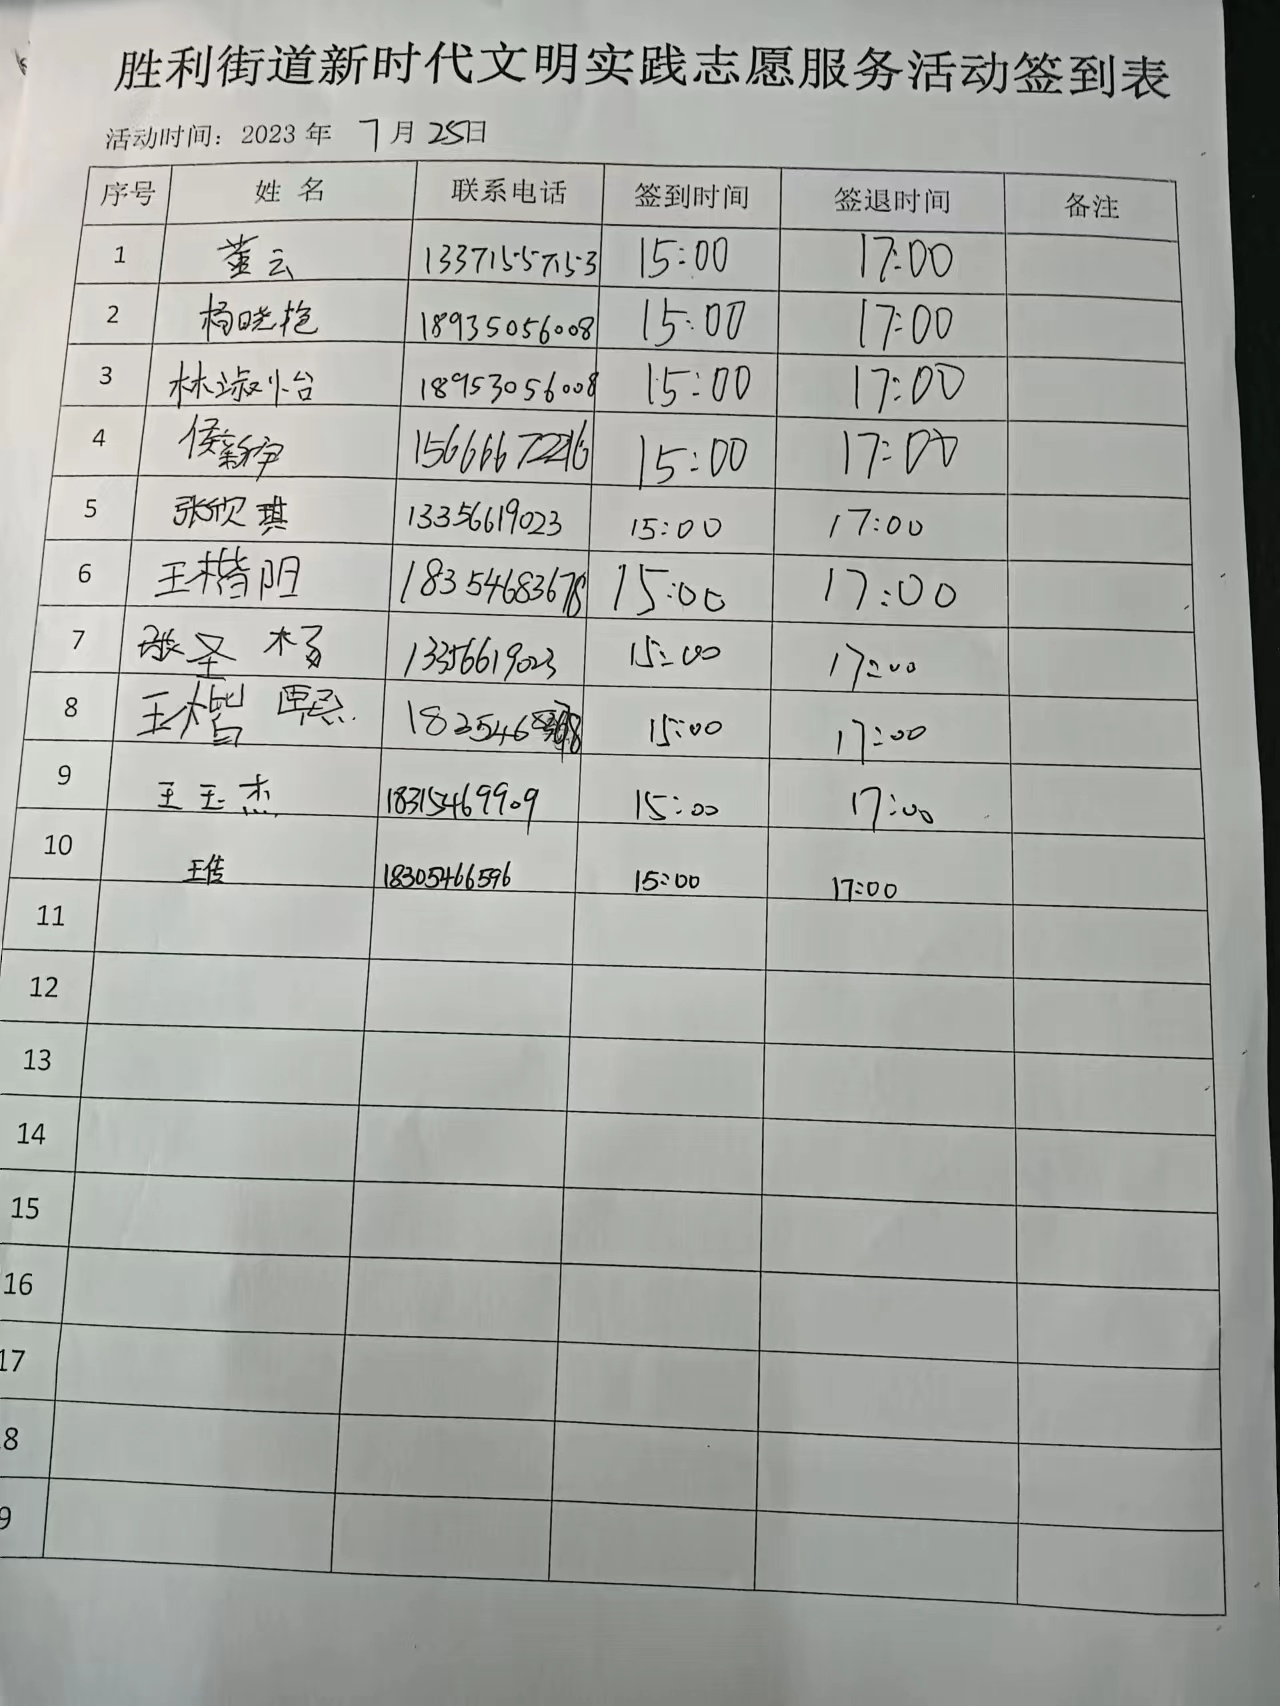 胜利街道新时代文明实践志愿服务活动签到表
活动时间：2023 年 7 月 25日
序号 姓 名 联系电话 签到时间 签退时间 备注
1 董云 13371557153 15:00 17:00
2 杨晓艳 18935056008 15:00 17:00
3 林淑怡 18953056008 15:00 17:00
4 侯新宇 15666672216 15:00 17:00
5 张欣琪 13356619023 15:00 17:00
6 王楷阳 18354683678 15:00 17:00
7 张圣杨 13356619023 15:00 17:00
8 王楷 15:00 17:00
9 王玉杰 18315469909 15:00 17:00
10 王传 18305466596 15:00 17:00
11
12
13
14
15
16
17
8
9